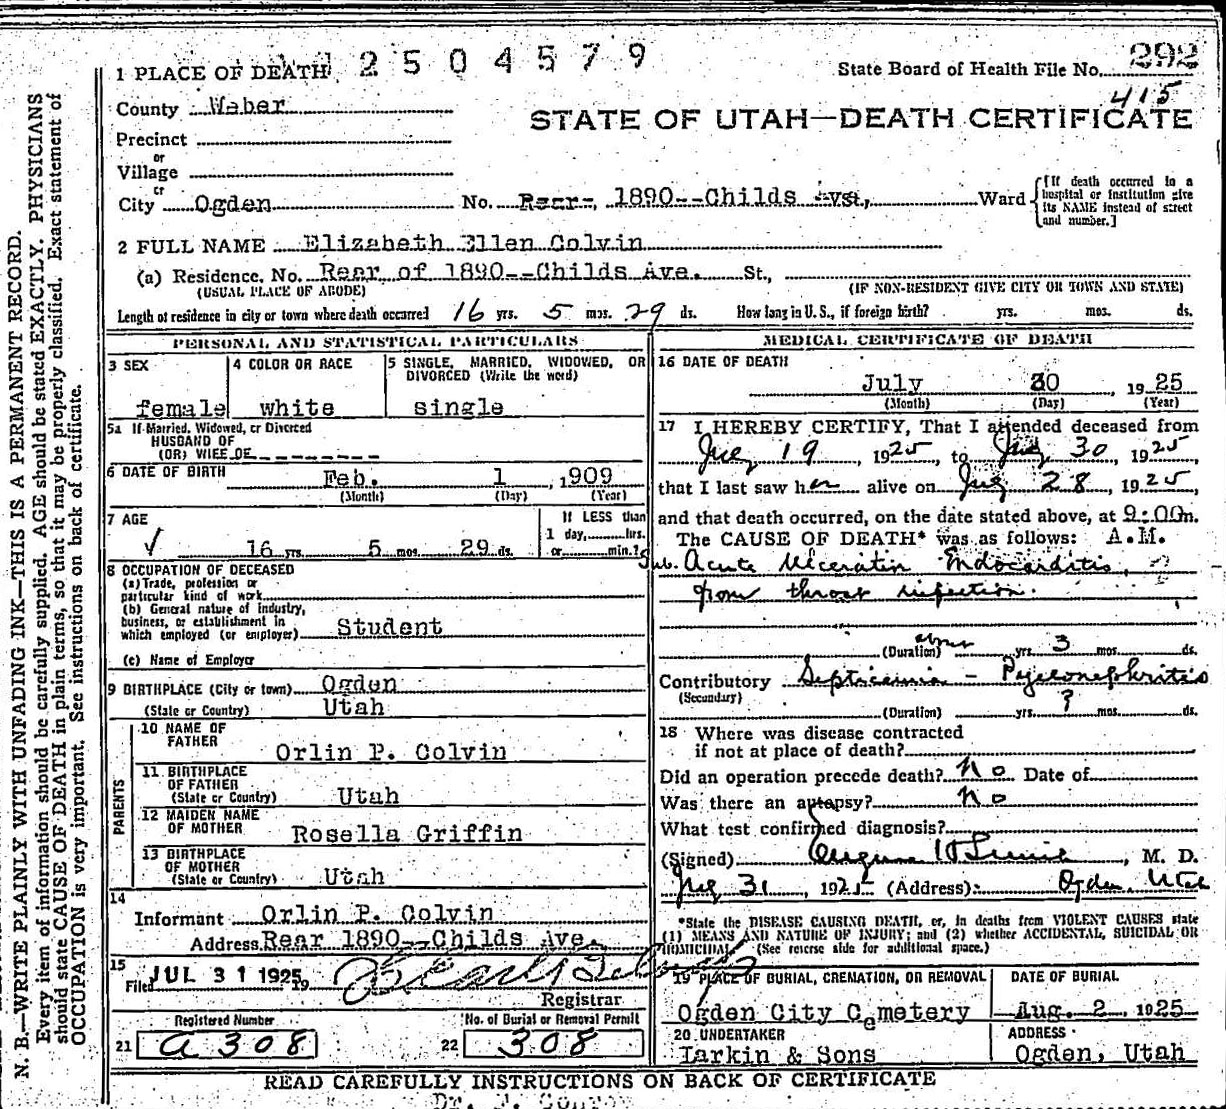 1 PLACE OF DEATH 2504579
State Board of Health File No. 292
415
County Weber
STATE OF UTAH—DEATH CERTIFICATE
Precinct
or
Village
or
City Ogden No. Rear-, 1890--Childs Ave. St., Ward
[If death occurred in a hospital or institution give its NAME instead of street and number.]
2 FULL NAME Elizabeth Ellen Colvin
(a) Residence. No. Rear of 1890--Childs Ave. St.,
(USUAL PLACE OF ABODE) (IF NON-RESIDENT GIVE CITY OR TOWN AND STATE)
Length of residence in city or town where death occurred 16 yrs. 5 mos. 29 ds. How long in U. S., if foreign birth? yrs. mos. ds.
PERSONAL AND STATISTICAL PARTICULARS
3 SEX
female
4 COLOR OR RACE
white
5 SINGLE, MARRIED, WIDOWED, OR
DIVORCED (Write the word)
single
5a If Married, Widowed, or Divorced
HUSBAND OF
(OR) WIFE OF
6 DATE OF BIRTH Feb. 1, 1909
(Month) (Day) (Year)
7 AGE
16 yrs. 5 mos. 29 ds.
If LESS than
1 day, hrs.
or min.?
8 OCCUPATION OF DECEASED
(a) Trade, profession or
particular kind of work
(b) General nature of industry,
business, or establishment in
which employed (or employer) Student
(c) Name of Employer
9 BIRTHPLACE (City or town) Ogden
(State or Country) Utah
PARENTS
10 NAME OF
FATHER Orlin P. Colvin
11 BIRTHPLACE
OF FATHER
(State or Country) Utah
12 MAIDEN NAME
OF MOTHER Rosella Griffin
13 BIRTHPLACE
OF MOTHER
(State or Country) Utah
14
Informant Orlin P. Colvin
Address Rear 1890--Childs Ave.
15
Filed JUL 31 1925, 19
Registrar
Registered Number
21 a 308
No. of Burial or Removal Permit
22 308
MEDICAL CERTIFICATE OF DEATH
16 DATE OF DEATH
July 30, 1925
(Month) (Day) (Year)
17 I HEREBY CERTIFY, That I attended deceased from
July 19, 1925, to July 30, 1925,
that I last saw her alive on July 28, 1925,
and that death occurred, on the date stated above, at 9:00m.
The CAUSE OF DEATH* was as follows: A.M.
Sub. Acute Ulcerative Endocarditis,
from throat infection.
(Duration) about yrs. 3 mos. ds.
Contributory Septicemia - Pyelonephritis
(Secondary)
(Duration) yrs. ? mos. ds.
18 Where was disease contracted
if not at place of death?
Did an operation precede death? No Date of
Was there an autopsy? No
What test confirmed diagnosis?
(Signed) , M. D.
July 31, 1925 (Address) Ogden, Utah
*State the DISEASE CAUSING DEATH, or, in deaths from VIOLENT CAUSES state
(1) MEANS AND NATURE OF INJURY; and (2) whether ACCIDENTAL, SUICIDAL OR
HOMICIDAL. (See reverse side for additional space.)
19 PLACE OF BURIAL, CREMATION, OR REMOVAL
Ogden City Cemetery
DATE OF BURIAL
Aug. 2, 1925
20 UNDERTAKER
Larkin & Sons
ADDRESS
Ogden, Utah
READ CAREFULLY INSTRUCTIONS ON BACK OF CERTIFICATE
N. B.—WRITE PLAINLY WITH UNFADING INK—THIS IS A PERMANENT RECORD.
Every item of information should be carefully supplied. AGE should be stated EXACTLY. PHYSICIANS
should state CAUSE OF DEATH in plain terms, so that it may be properly classified. Exact statement of
OCCUPATION is very important. See instructions on back of certificate.